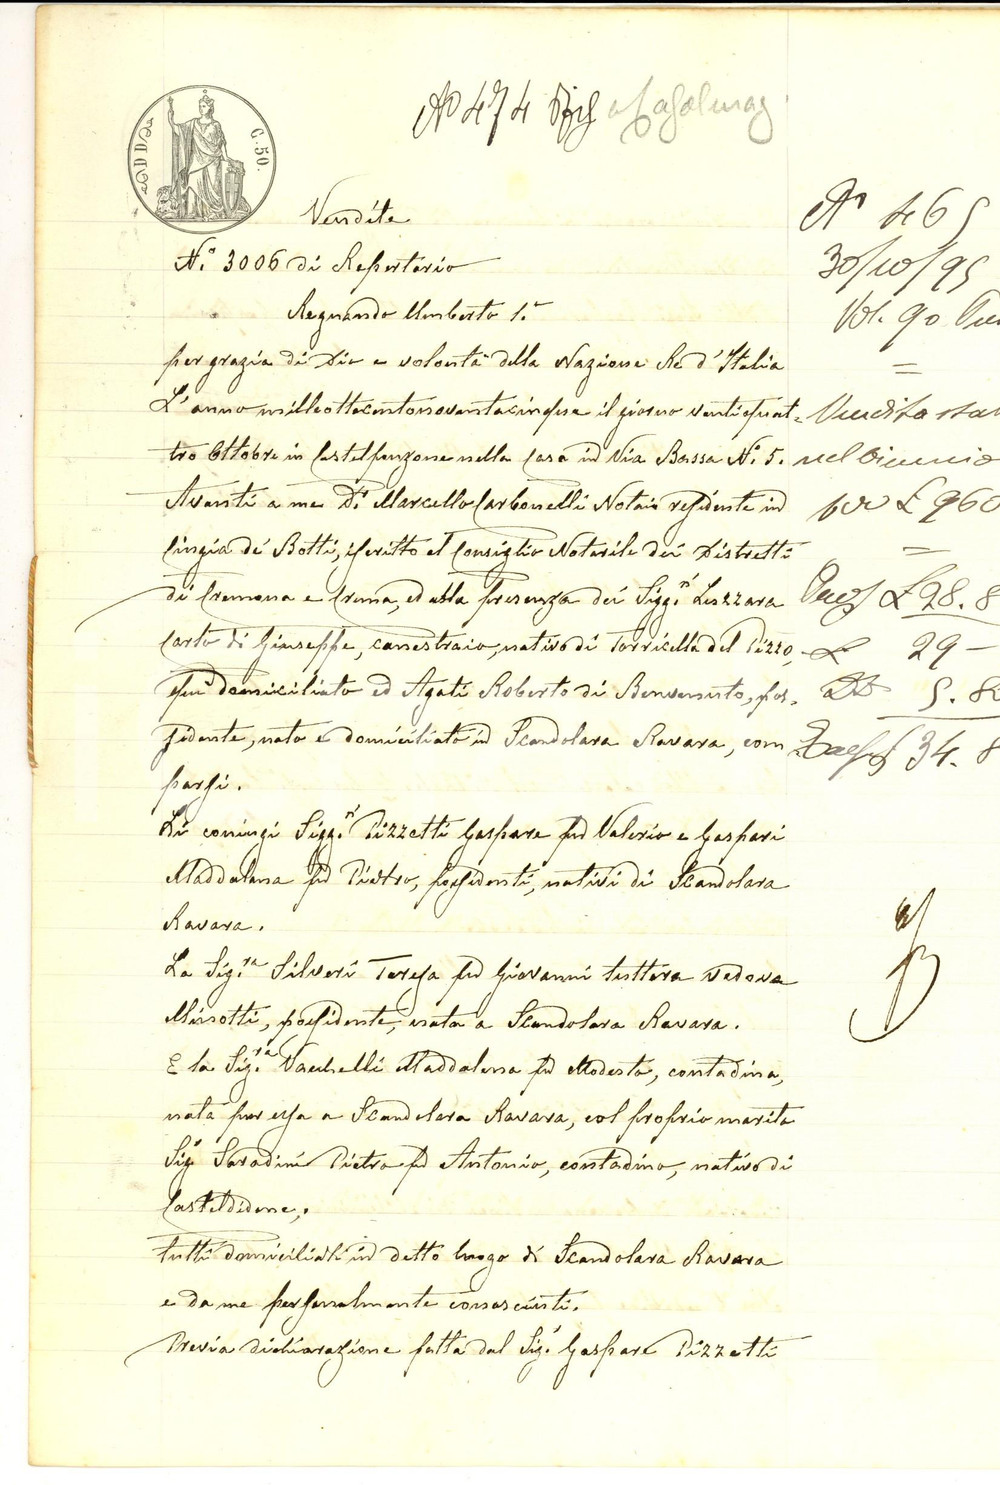 No 474
C. 50.
Vendita
N.° 3006 di Repertorio
Regnando Umberto 1.°
per grazia di Dio e volontà della Nazione Re d'Italia
L'anno milleottocentonovantacinque il giorno ventiquat=
tro Ottobre in Castelponzone nella Casa in Via Bassa N.° 5.
Avanti a me D.r Marcello Carbonelli Notaio residente in
Cingia de' Botti, iscritto al Consiglio Notarile dei Distretti
di Cremona e Crema, ed alla presenza dei Sigg.ri Lazzara
Carlo di Giuseppe, canestraio, nativo di Torricella del Pizzo,
qui domiciliato ed Agati Roberto di Benvenuto, pos=
sidente, nato e domiciliato in Scandolara Ravara, com
parsi.
Li coniugi Sigg.ri Pizzetti Gaspare fu Valerio e Gaspari
Maddalena fu Pietro, possidenti, nativi di Scandolara
Ravara.
La Sig.ra Silveri Teresa fu Giovanni tuttora vedova
Minotti, possidente, nata a Scandolara Ravara.
E la Sig.ra Vacchelli Maddalena fu Modesto, contadina,
nata pur essa a Scandolara Ravara, col proprio marito
Sig.r Saradini Pietro fu Antonio, contadino, nativo di
Casteldidone,
tutti domiciliati in detto luogo di Scandolara Ravara
e da me personalmente conosciuti.
Previa dichiarazione fatta dal Sig.r Gaspare Pizzetti
N° 465
30/10/95
Vol. 90
=
Vendita
nel biennio
per £ 960
=
£ 28.8
£ 29 -
5. 8
£ 34. 8